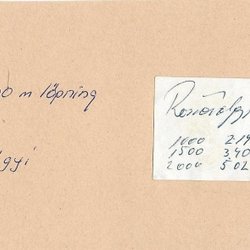 0 m löpning
gyi
1000 2.19
1500 3,40
2000 5 02